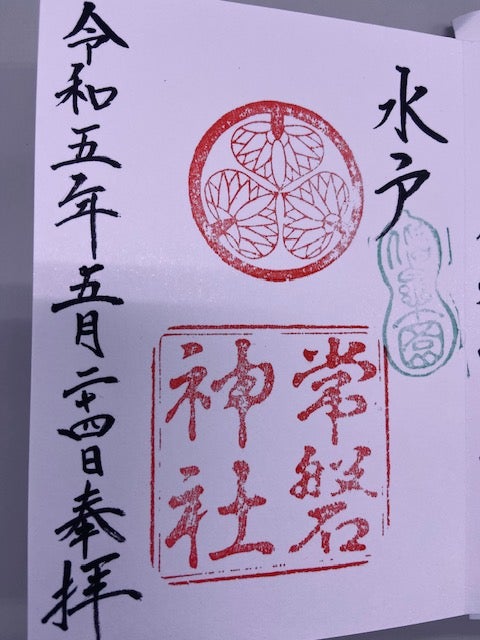 水戸
偕楽園
常磐
神社
令和五年五月二十四日奉拝